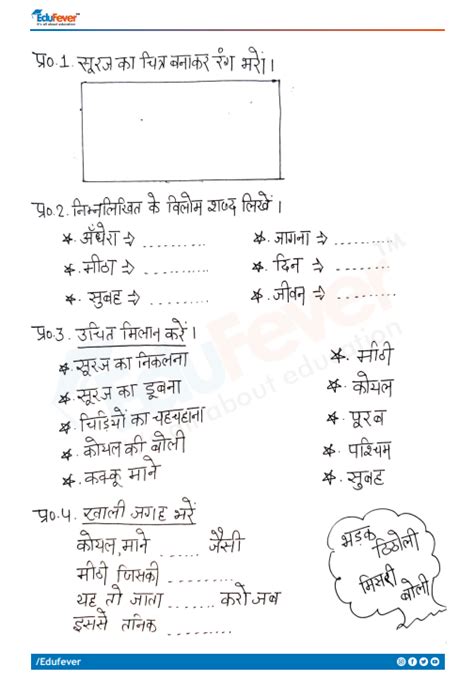 EduFever™
It's all about education
प्र०.1. सूरज का चित्र बनाकर रंग भरें।
प्र०.2. निम्नलिखित के विलोम शब्द लिखें।
* अँधेरा ⇒ .......... * जागना ⇒ ..........
* मीठा ⇒ .......... * दिन ⇒ ..........
* सुबह ⇒ .......... * जीवन ⇒ ..........
प्र०.3. उचित मिलान करें।
* सूरज का निकलना * मीठी
* सूरज का डूबना * कोयल
* चिड़ियों का चहचहाना * पूरब
* कोयल की बोली * पश्चिम
* कक्कू माने * सुबह
प्र०.4. खाली जगह भरें
कोयल, माने ...... जैसी
मीठी जिसकी ..........
यह तो जाता ....... करो जब
इससे तनिक ..........
भड़क
ठिठोली
मिसरी
बोली
EduFever™
It's all about education
/Edufever